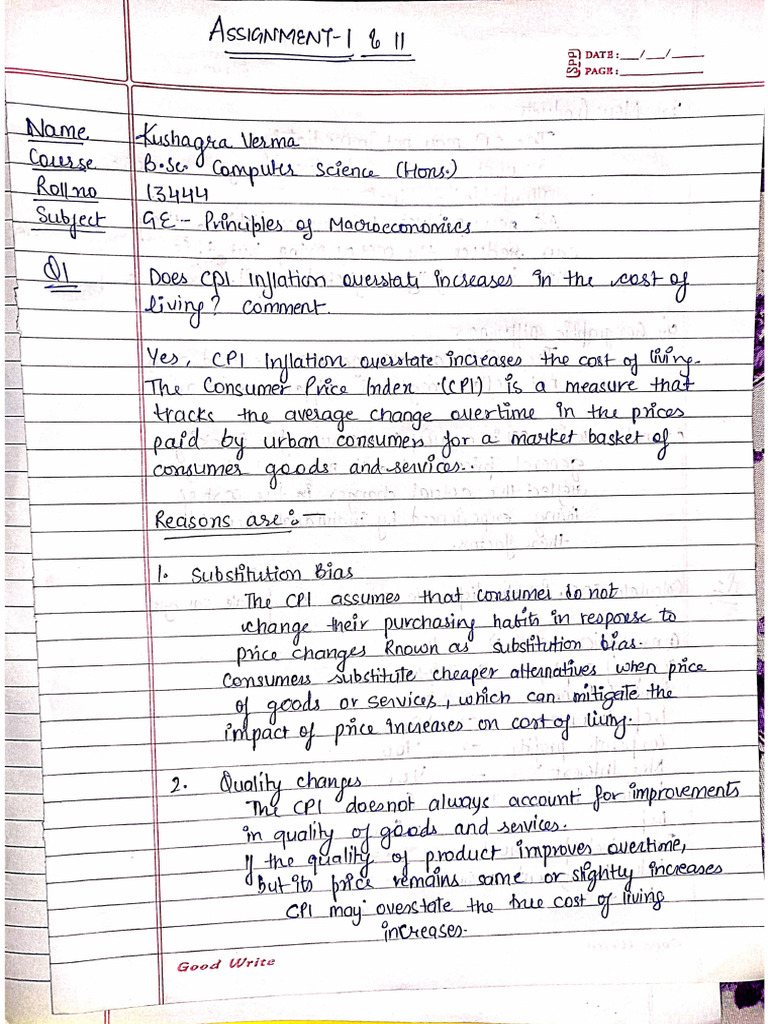 ASSIGNMENT-1 & 11
SPP DATE: __/__/____
PAGE: ________
Name Kushagra Verma
Course B.Sc. Computer Science (Hons.)
Roll no 13444
Subject GE - Principles of Macroeconomics
Q1 Does CPI Inflation overstate increases in the cost of
living? comment.
Yes, CPI Inflation overstate increases the cost of living.
The Consumer Price Index (CPI) is a measure that
tracks the average change overtime in the prices
paid by urban consumers for a market basket of
consumer goods and services.
Reasons are :-
1. Substitution Bias
The CPI assumes that consumer do not
change their purchasing habits in response to
price changes known as substitution bias.
Consumers substitute cheaper alternatives when price
of goods or services, which can mitigate the
impact of price increases on cost of living.
2. Quality changes
The CPI doesnot always account for improvements
in quality of goods and services.
If the quality of product improves overtime,
but its price remains same or slightly increases
CPI may overstate the true cost of living
increases.
Good Write